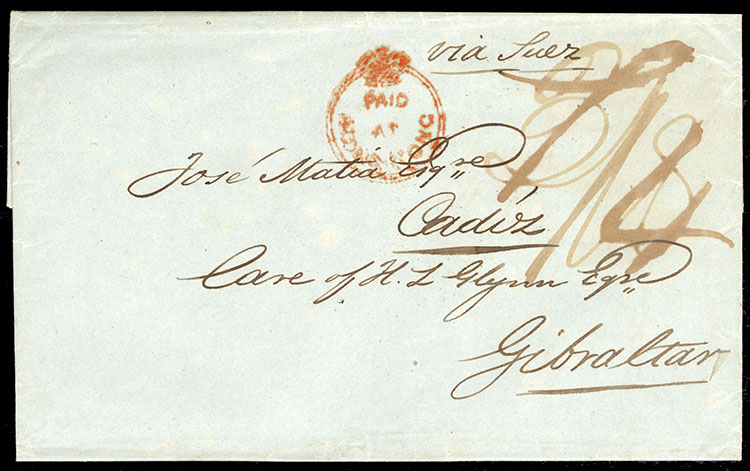 via Suez
PAID
AT
HONG KONG
José Matiá Esqre
Cadíz
Care of H. L Glynn Esqre
Gibraltar